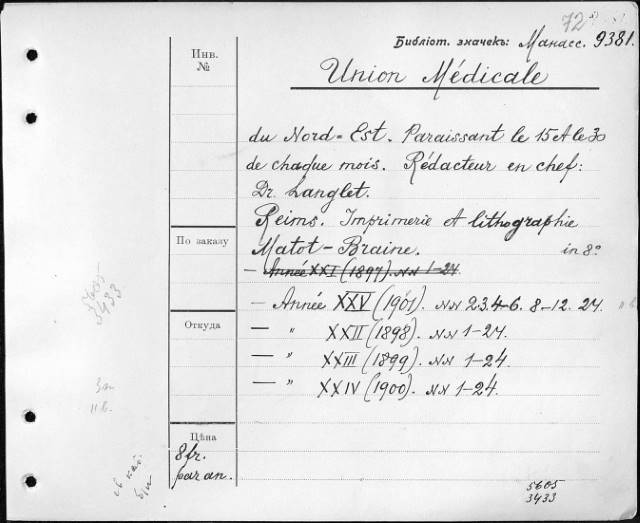 72
Библіот. значекъ: Манасс. 9381.
Инв.
№
Union Médicale
du Nord-Est. Paraissant le 15 et le 30
de chaque mois. Rédacteur en chef:
Dr. Langlet.
Reims. Imprimerie et lithographie
По заказу
Matot-Braine. in 8°
— Année XXI (1897). NN 1-24
5605
3433
— Année XXV (1901). NN 2.3.4-6. 8-12. 24.
Откуда
— " XXII (1898). NN 1-24.
— " XXIII (1899). NN 1-24.
— " XXIV (1900). NN 1-24.
Цѣна
8 fr.
par an.
5605
3433